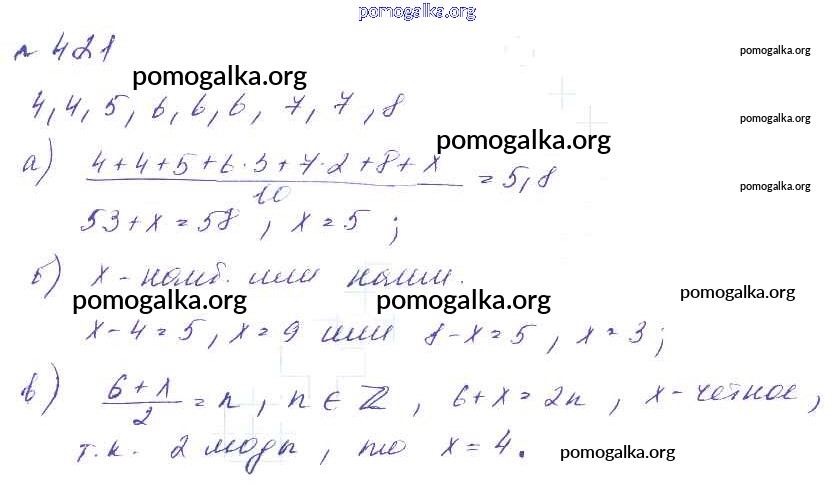 pomogalka.org
№ 421
pomogalka.org
pomogalka.org
4, 4, 5, 6, 6, 6, 7, 7, 8
pomogalka.org
pomogalka.org
а) (4+4+5+6·3+7·2+8+x)/10 = 5,8
pomogalka.org
53+x=58, x=5;
б) x - наиб. или наим.
pomogalka.org
pomogalka.org
pomogalka.org
x-4=5, x=9 или 8-x=5, x=3;
в) (6+x)/2 = n, n∈ℤ, 6+x=2n, x-четное,
т.к. 2 моды, то x=4.
pomogalka.org